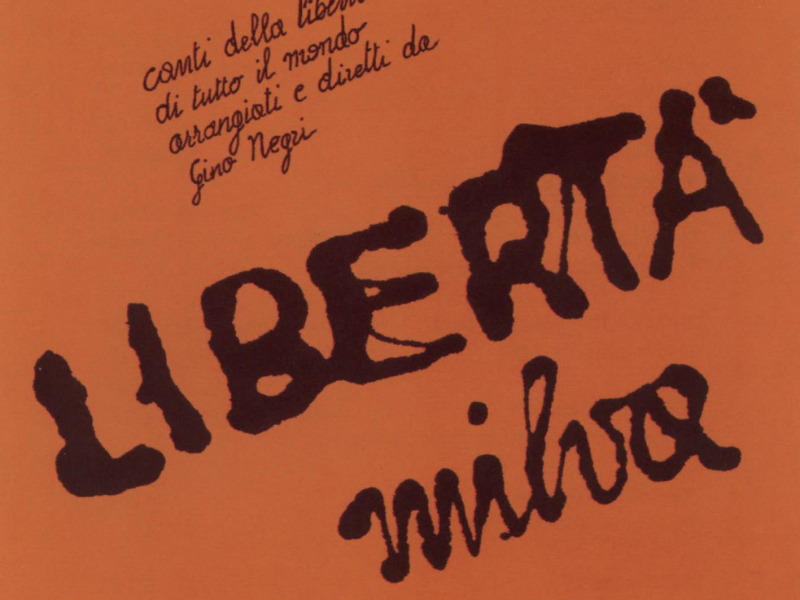 canti della libertà
di tutto il mondo
arrangiati e diretti da
Gino Negri
LIBERTÀ
milva